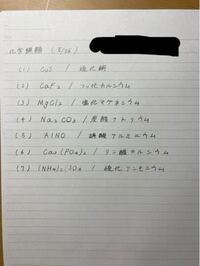 化学課題 (5/26)
(1) CuS / 硫化銅
(2) CaF₂ / フッ化カルシウム
(3) MgCl₂ / 塩化マグネシウム
(4) Na₂CO₃ / 炭酸ナトリウム
(5) AlNO / 硝酸アルミニウム
(6) Ca₃(PO₄)₂ / リン酸カルシウム
(7) (NH₄)₂SO₄ / 硫化アンモニウム